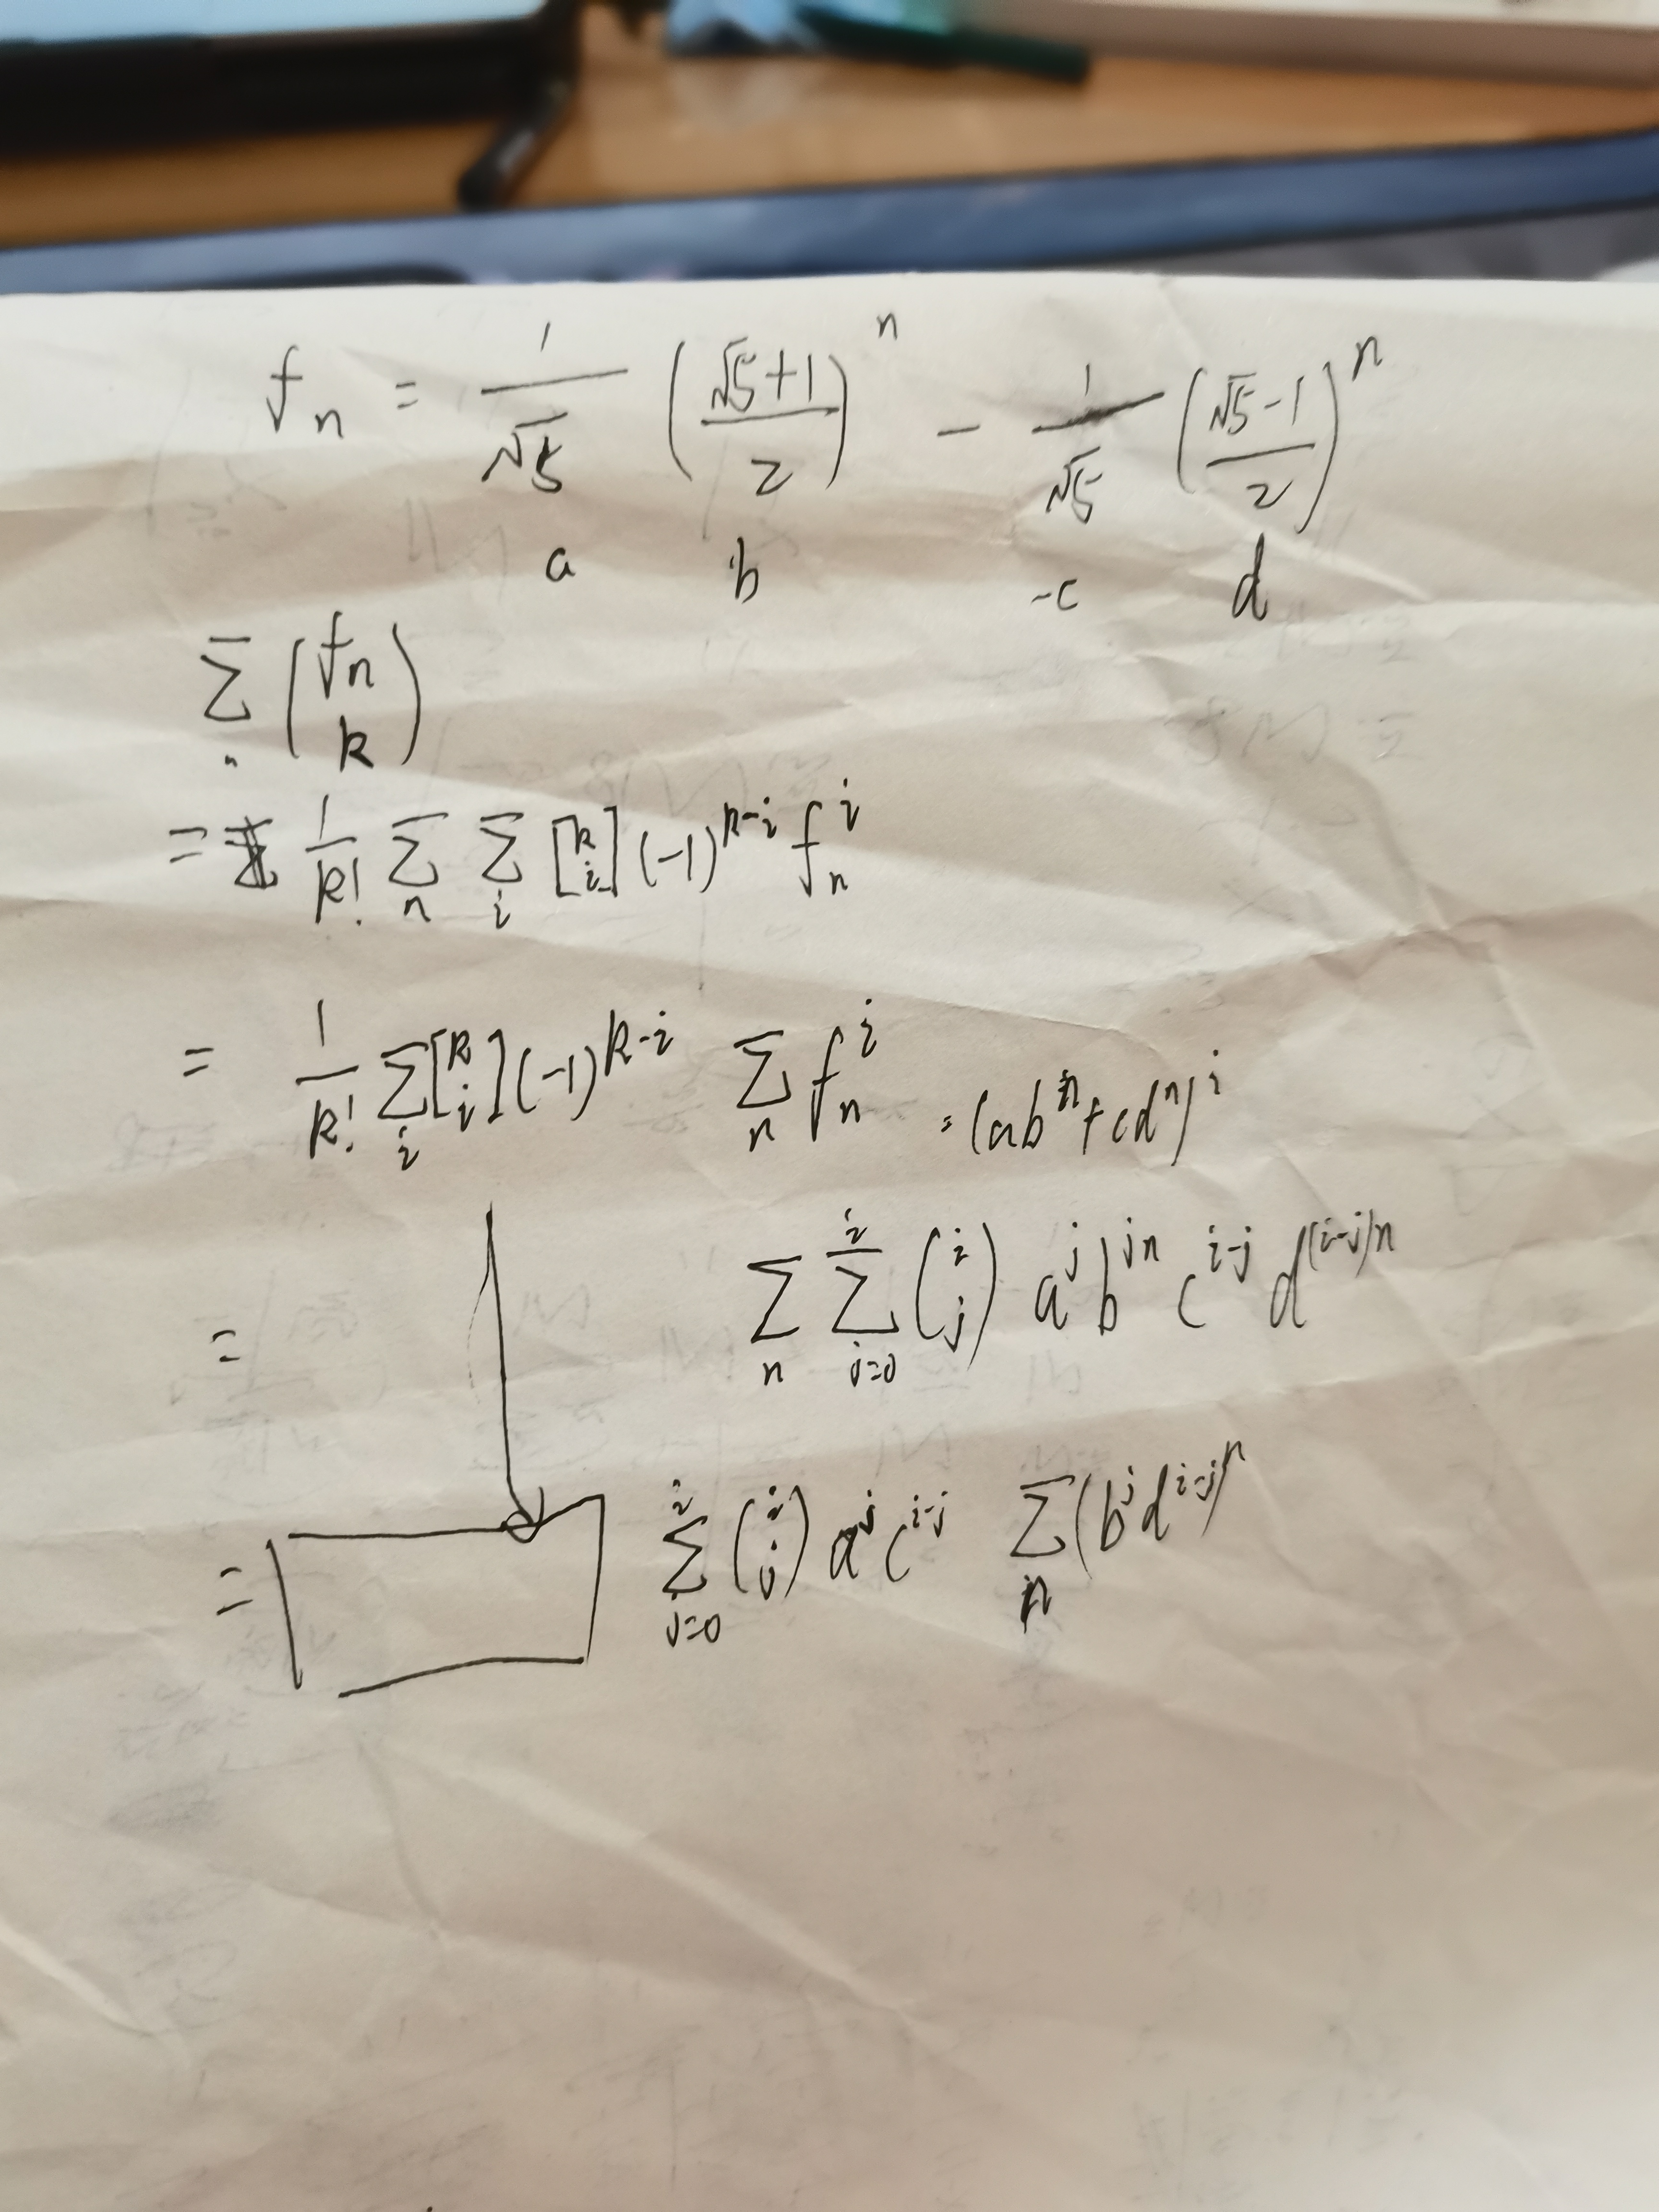 f_n = 1/√5 ((√5+1)/2)^n - 1/√5 ((√5-1)/2)^n
a b -c d
∑_n (f_n k)
= 1/k! ∑_n ∑_i [k i] (-1)^{k-i} f_n^i
= 1/k! ∑_i [k i] (-1)^{k-i} ∑_n f_n^i = (ab^n + cd^n)^i
= ∑_n ∑_{j=0}^i (i j) a^j b^{jn} c^{i-j} d^{(i-j)n}
= ∑_{j=0}^i (i j) a^j c^{i-j} ∑_n (b^j d^{i-j})^n